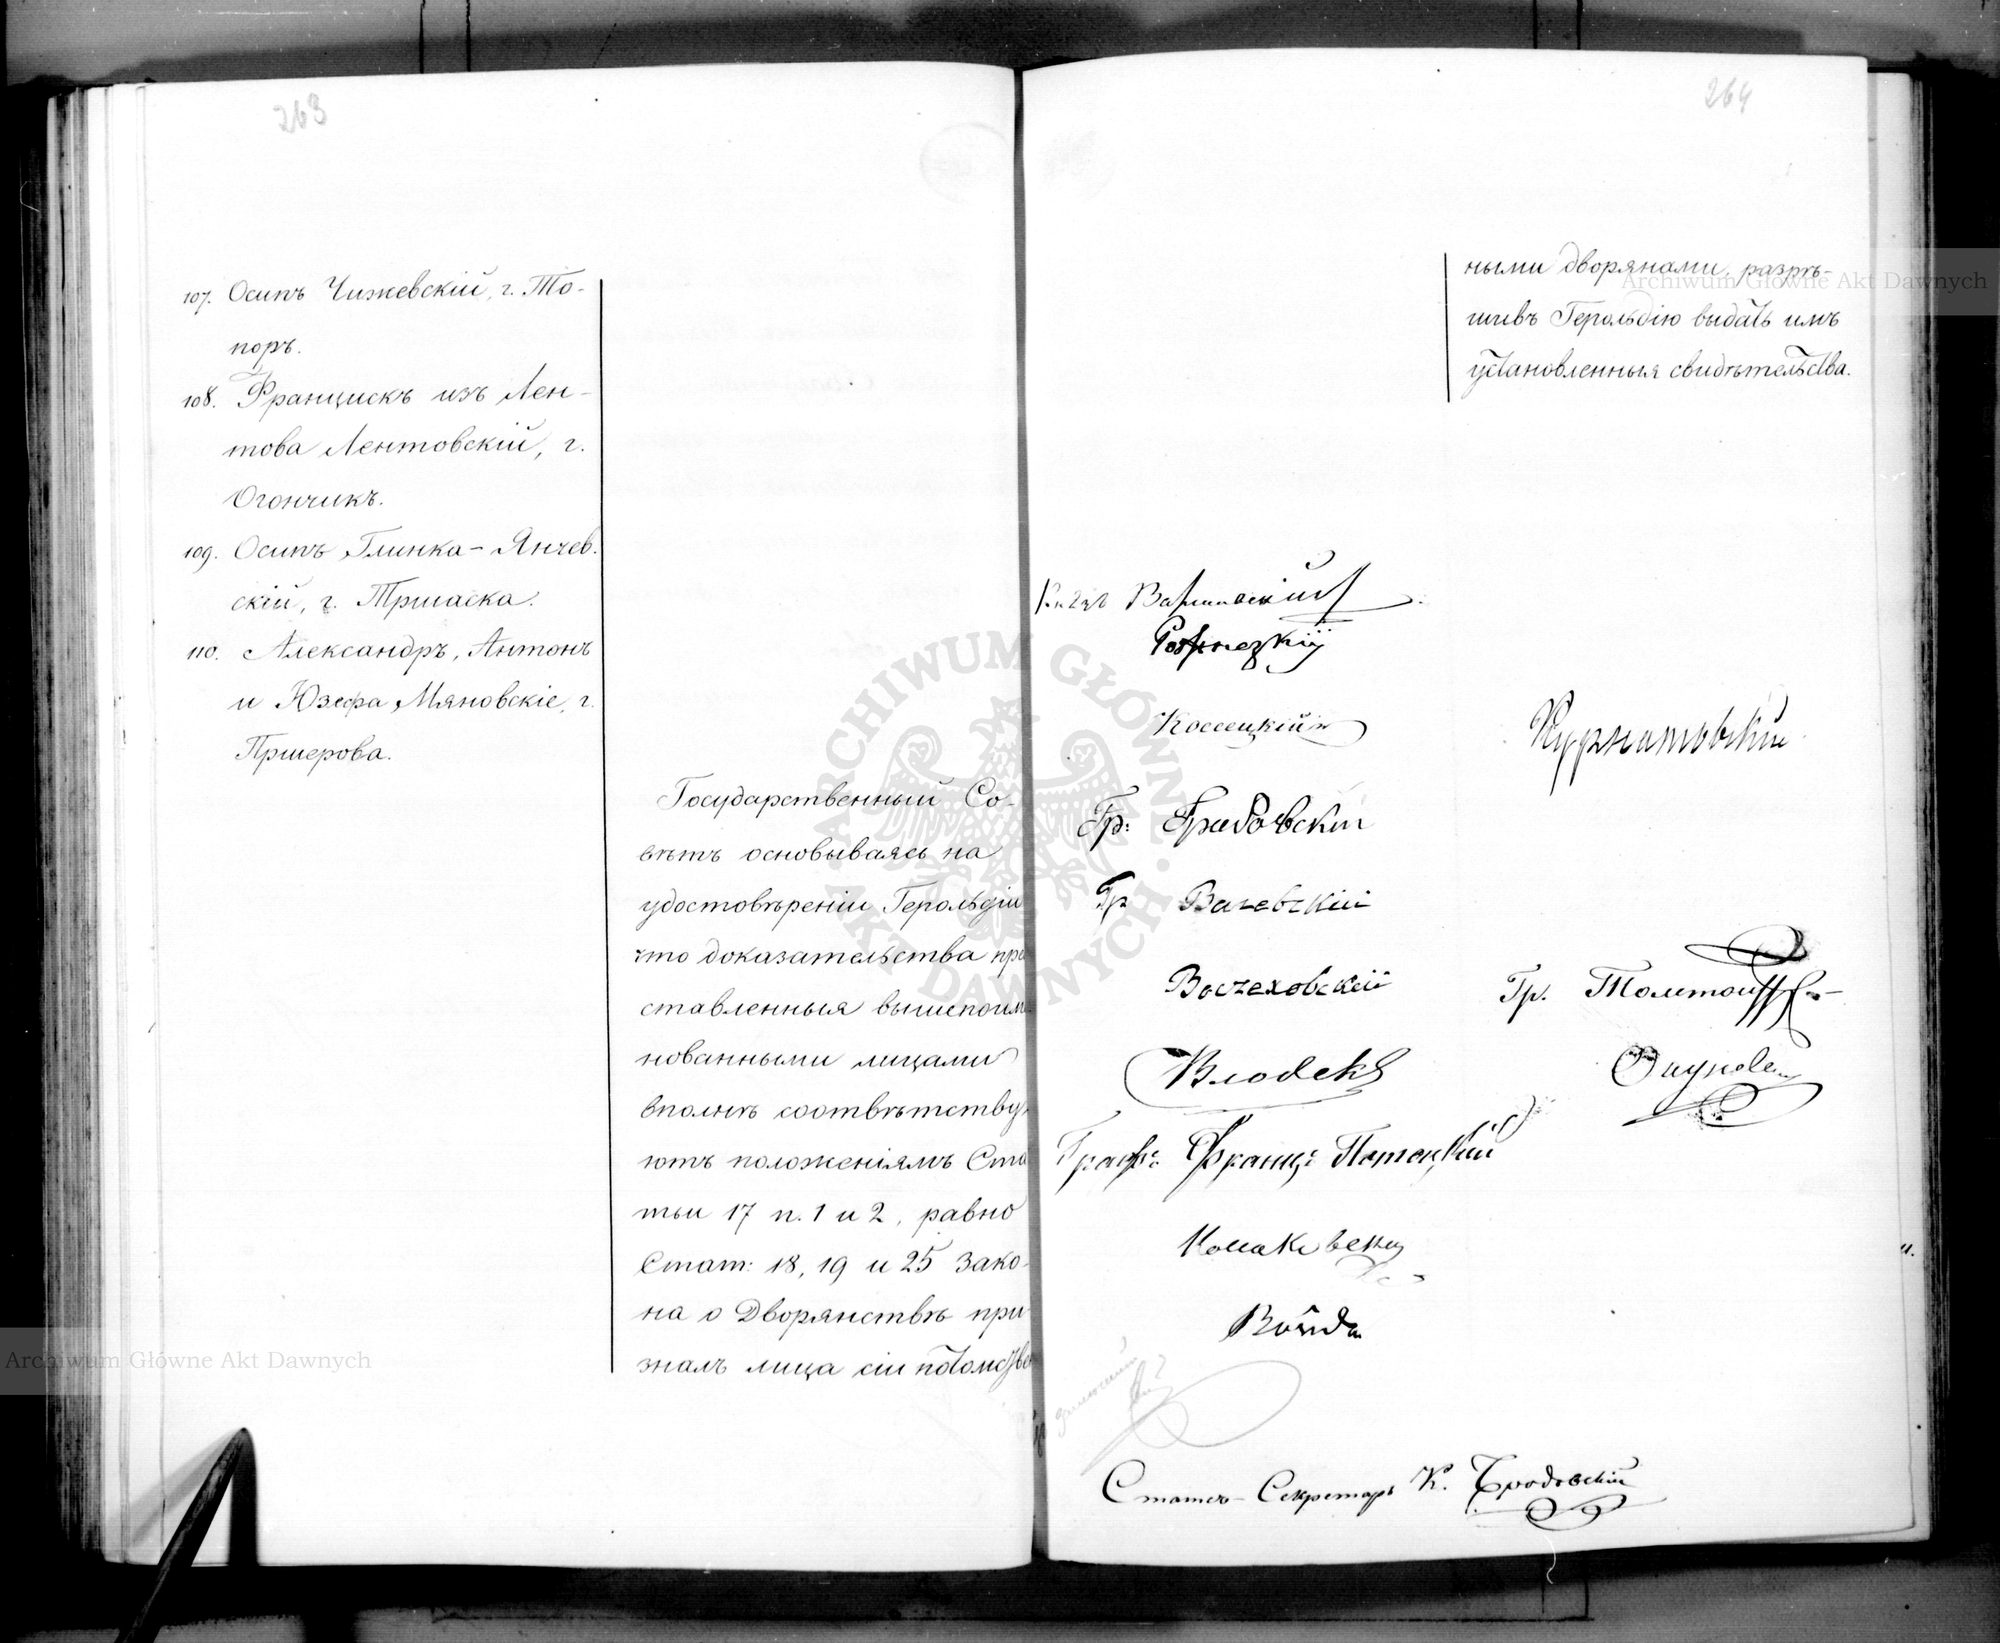 263
107. Осипъ Чижевскій, г. То-
поръ.
108. Францискъ изъ Лен-
това Лентовскій, г.
Огончикъ.
109. Осипъ Глинка-Янчев.
скій, г. Тршаска.
110. Александръ, Антонъ
и Юзефа Мяновскіе, г.
Пршерова.
Государственный Со-
вѣтъ основываясь на
удостовѣреніи Герольдіи
что доказательства пре
ставленныя вышепоиме
нованными лицами
вполнѣ соотвѣтству
ютъ положеніямъ Ста
тьи 17 п. 1 и 2, равно
Стат: 18, 19 и 25 Зако-
на о Дворянствѣ при
зналъ лица сіи потомстве
264
ными дворянами, разрѣ-
шивъ Герольдію выдать имъ
установленныя свидѣтельства.
Князь Варшавскій
Рожнецкій
Коссецкій
Курнатовскій
Гр: Грабовскій
Гр
Восчеховскій
Гр. Толстой
Влодекъ
Окуневъ
Графъ: Францъ: Потоцкій
Статсъ-Секретарь К. Бродовскій
ARCHIWUM GŁÓWNE AKT DAWNYCH
Archiwum Główne Akt Dawnych
Archiwum Główne Akt Dawnych